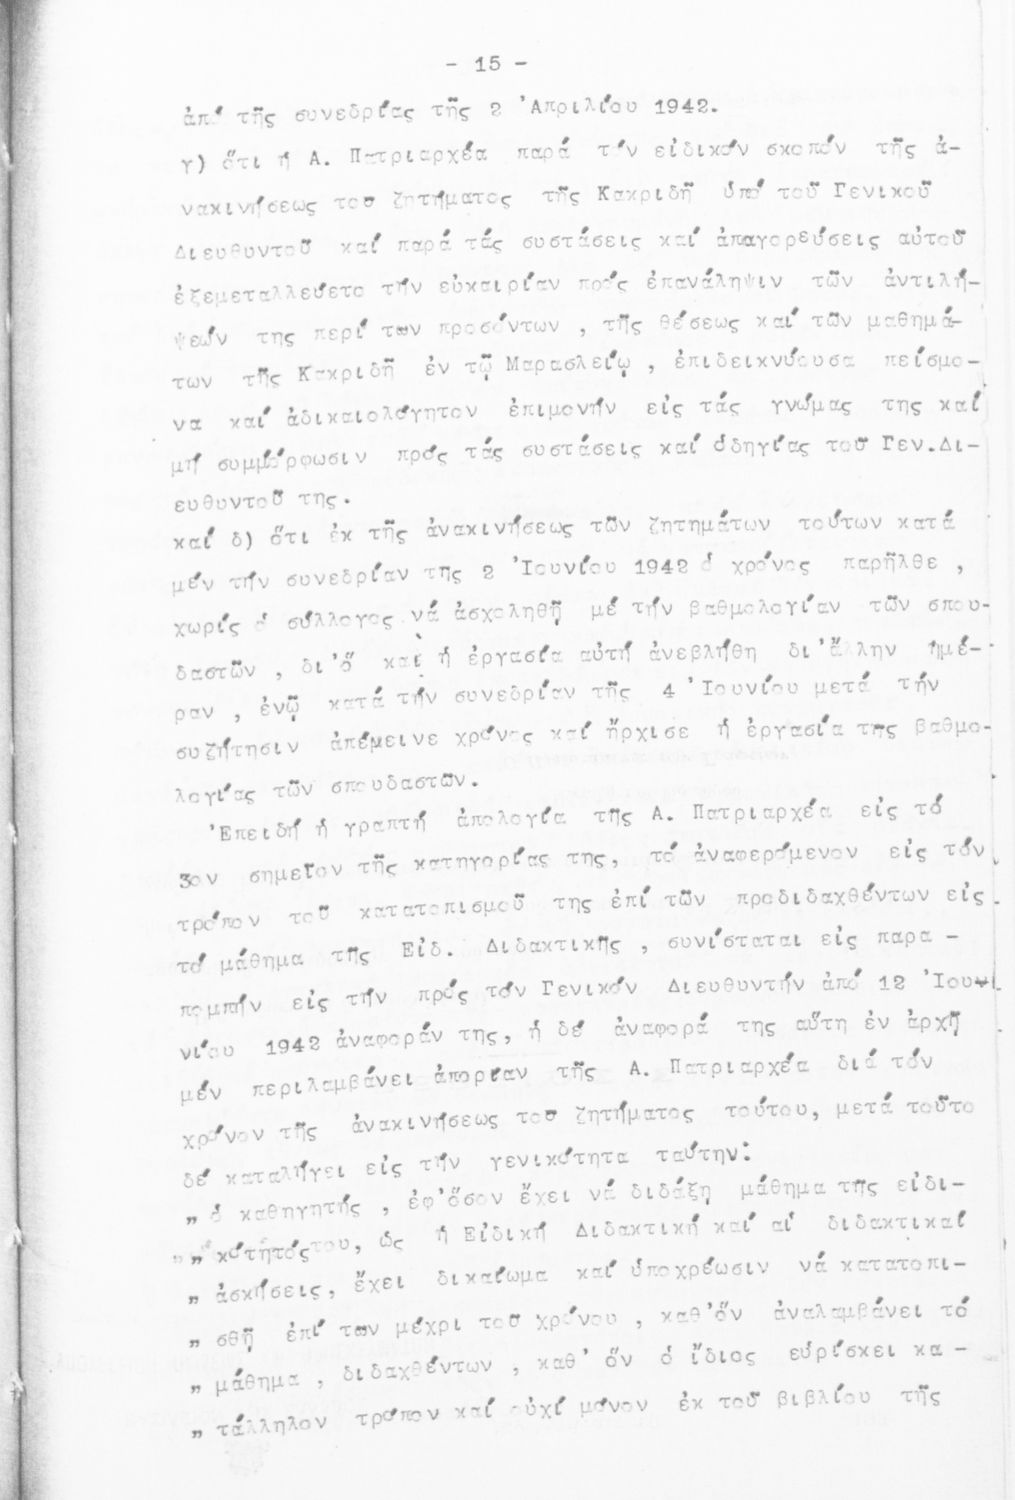 - 15 -
ἀπό τῆς συνεδρίας τῆς 2 Ἀπριλίου 1942.
γ) ὅτι ἡ Α. Πατριαρχέα παρά τόν εἰδικόν σκοπόν τῆς ἀ-
νακινήσεως του ζητήματος τῆς Κακριδῆ ὑπό τοῦ Γενικοῦ
Διευθυντοῦ καί παρά τάς συστάσεις καί ἀπαγορεύσεις αὐτοῦ
ἐξεμεταλλεύετο τήν εὐκαιρίαν πρός ἐπανάληψιν τῶν ἀντιλή-
ψεών της περί των προσόντων , τῆς θέσεως καί τῶν μαθημά-
των τῆς Κακριδῆ ἐν τῷ Μαρασλείῳ , ἐπιδεικνύουσα πείσμο-
να καί ἀδικαιολόγητον ἐπιμονήν εἰς τάς γνώμας της καί
μή συμμόρφωσιν πρός τάς συστάσεις καί ὁδηγίας τοῦ Γεν.Δι-
ευθυντοῦ της.
καί δ) ὅτι ἐκ τῆς ἀνακινήσεως τῶν ζητημάτων τούτων κατά
μέν τήν συνεδρίαν της 2 Ἰουνίου 1942 ὁ χρόνος παρῆλθε ,
χωρίς ὁ σύλλογος νά ἀσχοληθῇ μέ τήν βαθμολογίαν τῶν σπου-
δαστῶν , δι'ὅ καί ἡ ἐργασία αὐτή ἀνεβλήθη δι'ἄλλην ἡμέ-
ραν , ἐνῷ κατά τήν συνεδρίαν τῆς 4 Ἰουνίου μετά τήν
συζήτησιν ἀπέμεινε χρόνος καί ἤρχισε ἡ ἐργασία της βαθμο-
λογίας τῶν σπουδαστῶν.
Ἐπειδή ἡ γραπτή ἀπολογία τῆς Α. Πατριαρχέα εἰς τό
3ον σημεῖον τῆς κατηγορίας της, τό ἀναφερόμενον εἰς τόν
τρόπον τοῦ κατατοπισμοῦ της ἐπί τῶν προδιδαχθέντων εἰς
τό μάθημα τῆς Εἰδ. Διδακτικῆς , συνίσταται εἰς παρα -
πομπήν εἰς τήν πρός τόν Γενικόν Διευθυντήν ἀπό 12 Ἰου-
νίου 1942 ἀναφοράν της, ἡ δέ ἀναφορά της αὕτη ἐν ἀρχῇ
μέν περιλαμβάνει ἀπορίαν τῆς Α. Πατριαρχέα διά τόν
χρόνον τῆς ἀνακινήσεως τοῦ ζητήματος τούτου, μετά τοῦτο
δέ καταλήγει εἰς τήν γενικότητα ταύτην:
„ ὁ καθηγητής , ἐφ'ὅσον ἔχει νά διδάξῃ μάθημα της εἰδι-
„ „ κότητός του, ὡς ἡ Εἰδική Διδακτική καί αἱ διδακτικαί
„ ἀσκήσεις, ἔχει δικαίωμα καί ὑποχρέωσιν νά κατατοπι-
„ σθῇ ἐπί των μέχρι τοῦ χρόνου , καθ'ὅν ἀναλαμβάνει τό
„ μάθημα , διδαχθέντων , καθ' ὅν ὁ ἴδιος εὑρίσκει κα -
„ τάλληλον τρόπον καί οὐχί μόνον ἐκ τοῦ βιβλίου τῆς